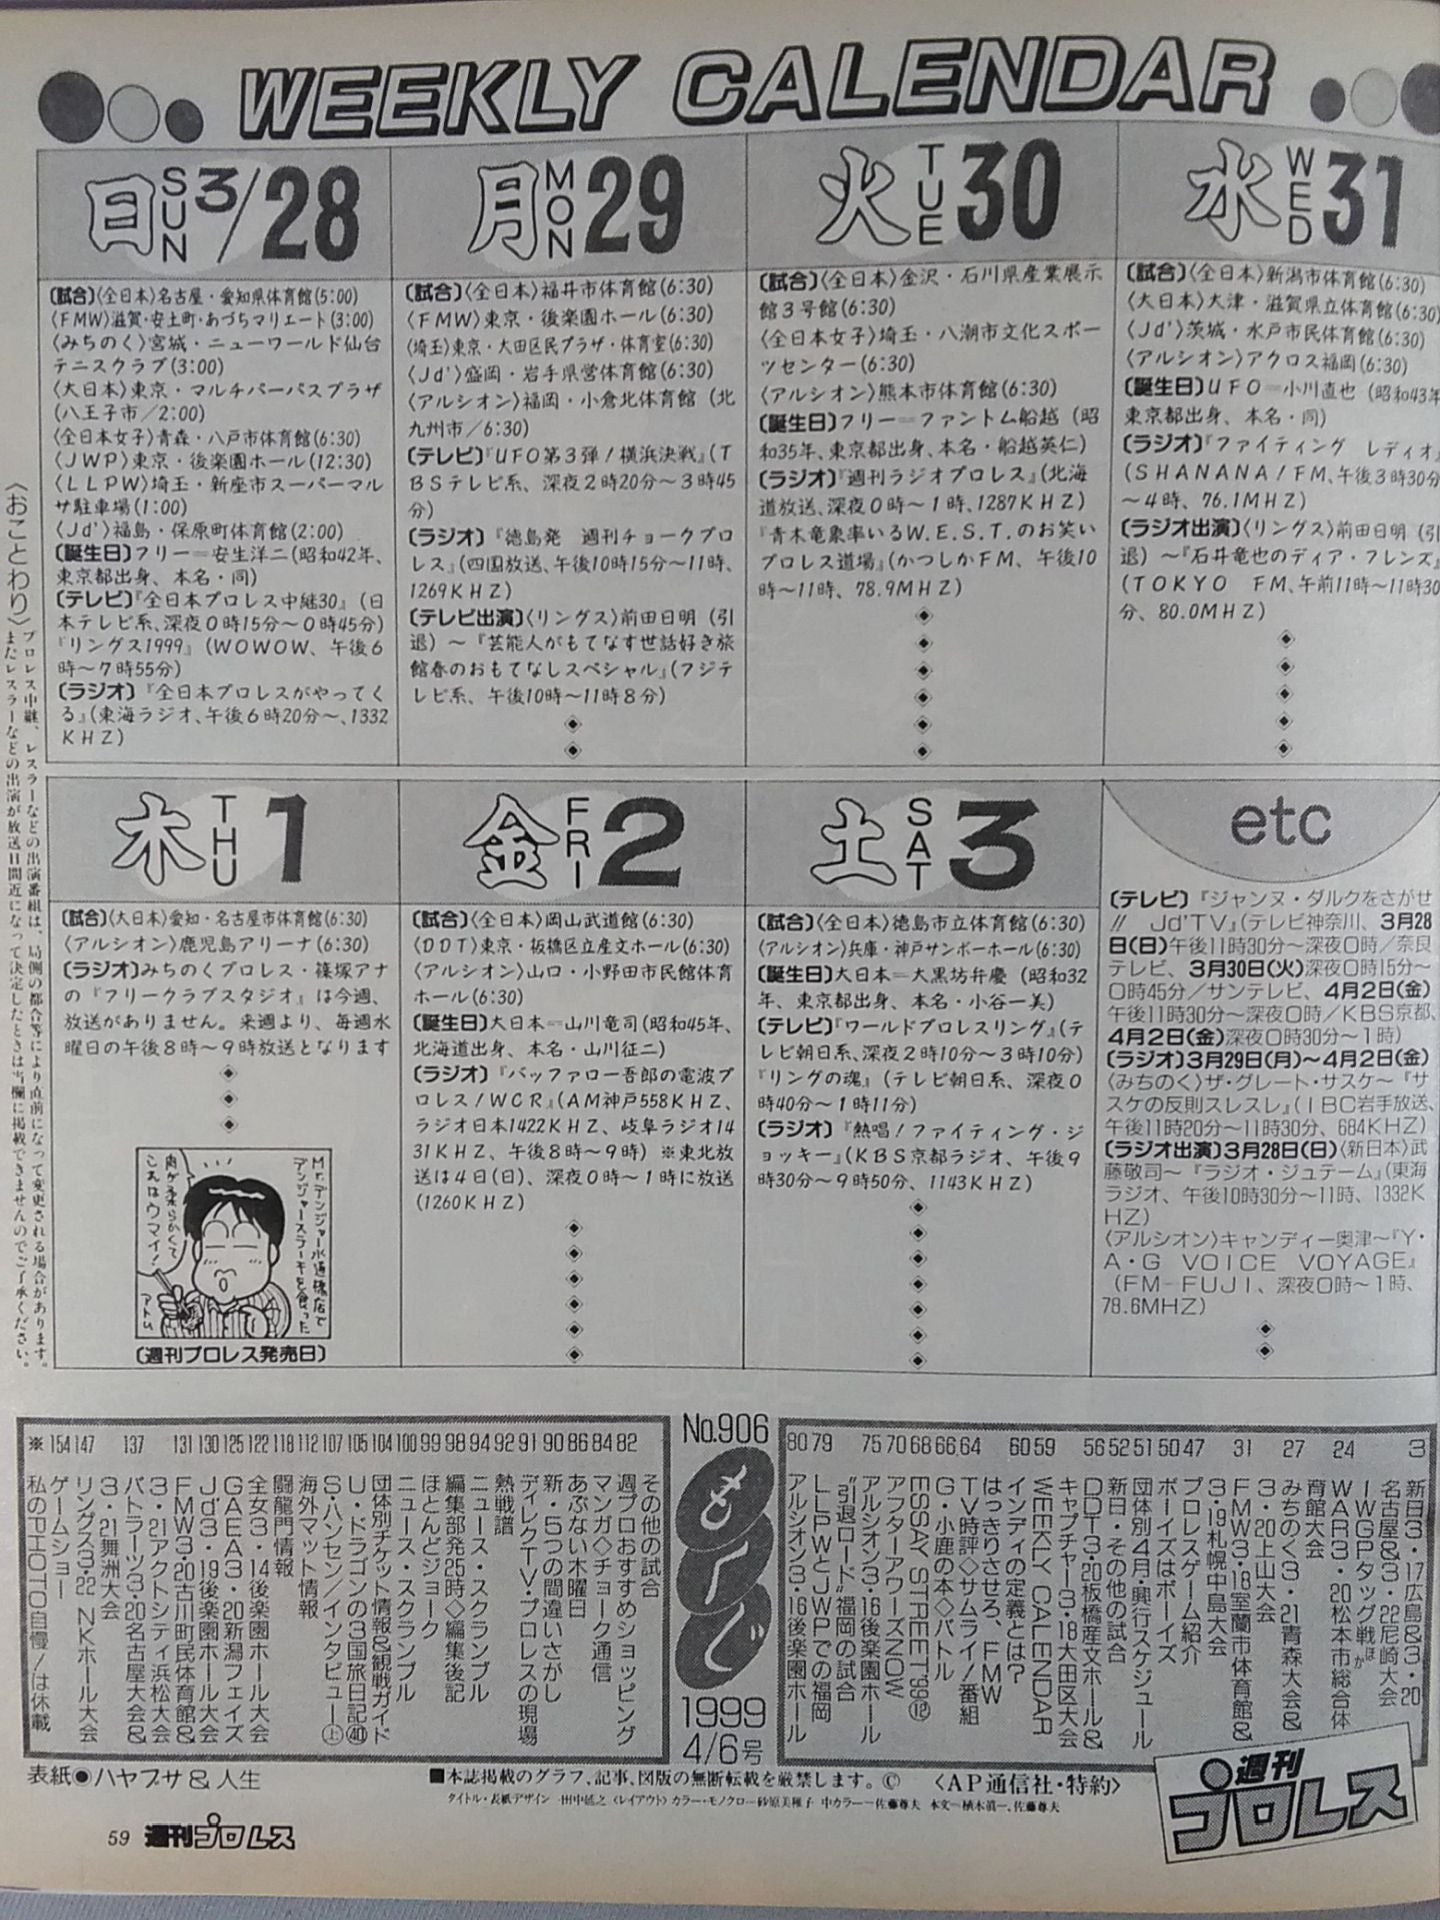 WEEKLY CALENDAR
日 SUN 3/28
〔試合〕〈全日本〉名古屋・愛知県体育館(5:00)
〈FMW〉滋賀・安土町・あづちマリエート(3:00)
〈みちのく〉宮城・ニューワールド仙台
テニスクラブ(3:00)
〈大日本〉東京・マルチパーパスプラザ
(八王子市/2:00)
〈全日本女子〉青森・八戸市体育館(6:30)
〈JWP〉東京・後楽園ホール(12:30)
〈LLPW〉埼玉・新座市スーパーマル
サ駐車場(1:00)
〈Jd'〉福島・保原町体育館(2:00)
〔誕生日〕フリー＝安生洋二(昭和42年、
東京都出身、本名・同)
〔テレビ〕『全日本プロレス中継30』(日
本テレビ系、深夜0時15分〜0時45分)
『リングス1999』(WOWOW、午後6
時〜7時55分)
〔ラジオ〕『全日本プロレスがやってく
る』(東海ラジオ、午後6時20分〜、1332
KHZ)
月 MON 29
〔試合〕〈全日本〉福井市体育館(6:30)
〈FMW〉東京・後楽園ホール(6:30)
〈埼玉〉東京・大田区民プラザ・体育室(6:30)
〈Jd'〉盛岡・岩手県営体育館(6:30)
〈アルシオン〉福岡・小倉北体育館(北
九州市/6:30)
〔テレビ〕『UFO第3弾!横浜決戦』(T
BSテレビ系、深夜2時20分〜3時45
分)
〔ラジオ〕『徳島発 週刊チョークプロ
レス』(四国放送、午後10時15分〜11時、
1269KHZ)
〔テレビ出演〕〈リングス〉前田日明(引
退)〜『芸能人がもてなす世話好き旅
館春のおもてなしスペシャル』(フジテ
レビ系、午後10時〜11時8分)
火 TUE 30
〔試合〕〈全日本〉金沢・石川県産業展示
館3号館(6:30)
〈全日本女子〉埼玉・八潮市文化スポー
ツセンター(6:30)
〈アルシオン〉熊本市体育館(6:30)
〔誕生日〕フリー＝ファントム船越(昭
和35年、東京都出身、本名・船越英仁)
〔ラジオ〕『週刊ラジオプロレス』(北海
道放送、深夜0時〜1時、1287KHZ)
『青木竜象率いるW.E.S.T.のお笑い
プロレス道場』(かつしかFM、午後10
時〜11時、78.9MHZ)
水 WED 31
〔試合〕〈全日本〉新潟市体育館(6:30)
〈大日本〉大津・滋賀県立体育館(6:30)
〈Jd'〉茨城・水戸市民体育館(6:30)
〈アルシオン〉アクロス福岡(6:30)
〔誕生日〕UFO＝小川直也(昭和43年
東京都出身、本名・同)
〔ラジオ〕『ファイティング レディオ』
(SHANANA!FM、午後3時30分
〜4時、76.1MHZ)
〔ラジオ出演〕〈リングス〉前田日明(引
退)〜『石井竜也のディア・フレンズ』
(TOKYO FM、午前11時〜11時30
分、80.0MHZ)
〈おことわり〉プロレス中継、レスラーなどの出演番組は、局側の都合等により直前になって変更される場合があります。
またレスラーなどの出演が放送日間近になって決定したときは当欄に掲載できませんのでご了承ください。
木 THU 1
〔試合〕〈大日本〉愛知・名古屋市体育館(6:30)
〈アルシオン〉鹿児島アリーナ(6:30)
〔ラジオ〕みちのくプロレス・篠塚アナ
の『フリークラブスタジオ』は今週、
放送がありません。来週より、毎週水
曜日の午後8時〜9時放送となります
Mr.デンジャー水道橋店で
デンジャーステーキを食った
肉が柔らかくて
これはウマイ!
アトム
〔週刊プロレス発売日〕
金 FRI 2
〔試合〕〈全日本〉岡山武道館(6:30)
〈DDT〉東京・板橋区立産文ホール(6:30)
〈アルシオン〉山口・小野田市民館体育
ホール(6:30)
〔誕生日〕大日本＝山川竜司(昭和45年、
北海道出身、本名・山川征二)
〔ラジオ〕『バッファロー吾郎の電波プ
ロレス!WCR』(AM神戸558KHZ、
ラジオ日本1422KHZ、岐阜ラジオ14
31KHZ、午後8時〜9時) ※東北放
送は4日(日)、深夜0時〜1時に放送
(1260KHZ)
土 SAT 3
〔試合〕〈全日本〉徳島市立体育館(6:30)
〈アルシオン〉兵庫・神戸サンボーホール(6:30)
〔誕生日〕大日本＝大黒坊弁慶(昭和32
年、東京都出身、本名・小谷一美)
〔テレビ〕『ワールドプロレスリング』(テ
レビ朝日系、深夜2時10分〜3時10分)
『リングの魂』(テレビ朝日系、深夜0
時40分〜1時11分)
〔ラジオ〕『熱唱!ファイティング・ジ
ョッキー』(KBS京都ラジオ、午後9
時30分〜9時50分、1143KHZ)
etc
〔テレビ〕『ジャンヌ・ダルクをさがせ
!! Jd'TV』(テレビ神奈川、3月28
日(日)午後11時30分〜深夜0時/奈良
テレビ、3月30日(火)深夜0時15分〜
0時45分/サンテレビ、4月2日(金)
午後11時30分〜深夜0時/KBS京都、
4月2日(金)深夜0時30分〜1時)
〔ラジオ〕3月29日(月)〜4月2日(金)
〈みちのく〉ザ・グレート・サスケ〜『サ
スケの反則スレスレ』(IBC岩手放送、
午後11時20分〜11時30分、684KHZ)
〔ラジオ出演〕3月28日(日)〈新日本〉武
藤敬司〜『ラジオ・ジュテーム』(東海
ラジオ、午後10時30分〜11時、1332K
HZ)
〈アルシオン〉キャンディー奥津〜『Y・
A・G VOICE VOYAGE』
(FM-FUJI、深夜0時〜1時、
78.6MHZ)
No.906
もくじ
1999
4/6号
3 新日3・17広島&3・20
名古屋&3・22尼崎大会
IWGPタッグ戦ほか
24 WAR3・20松本市総合体
育館大会
27 みちのく3・21青森大会&
3・20上山大会
31 FMW3・18室蘭市体育館&
3・19札幌中島大会
47 プロレスゲーム紹介
50 ボーイズはボーイズ
51 団体別4月・興行スケジュール
52 新日・その他の試合
56 DDT3・20板橋産文ホール&
キャプチャー3・18大田区大会
59 WEEKLY CALENDAR
60 インディの定義とは?
はっきりさせろ、FMW
64 TV時評◇サムライ!番組
66 G・小鹿の本◇バトル
68 ESSAY STREET'99⑫
70 アフターアワーズNOW
75 アルシオン3・16後楽園ホール
"引退ロード"福岡の試合
79 LLPWとJWPでの福岡
80 アルシオン3・16後楽園ホール
82 その他の試合
84 週プロおすすめショッピング
86 マンガ◇チョーク通信
90 あぶない木曜日
91 新・5つの間違いさがし
92 ディレクTV・プロレスの現場
94 熱戦譜
98 ニュース・スクランブル
99 編集部発25時◇編集後記
100 ほとんどジョーク
104 ニュース・スクランブル
105 団体別チケット情報&観戦ガイド
107 U・ドラゴンの3国旅日記㊵
112 S・ハンセン/インタビュー㊤
118 海外マット情報
122 闘龍門情報
125 全女3・14後楽園ホール大会
130 GAEA3・20新潟フェイズ
131 Jd'3・19後楽園ホール大会
137 FMW3・20古川町民体育館&
3・21アクトシティ浜松大会
バトラーツ3・20名古屋大会&
3・21舞洲大会
147 リングス3・22 NKホール大会
154 ゲームショー
※ 私のPHOTO自慢!は休載
表紙●ハヤブサ&人生
■本誌掲載のグラフ、記事、図版の無断転載を厳禁します。© 〈AP通信社・特約〉
週刊プロレス
59 週刊プロレス